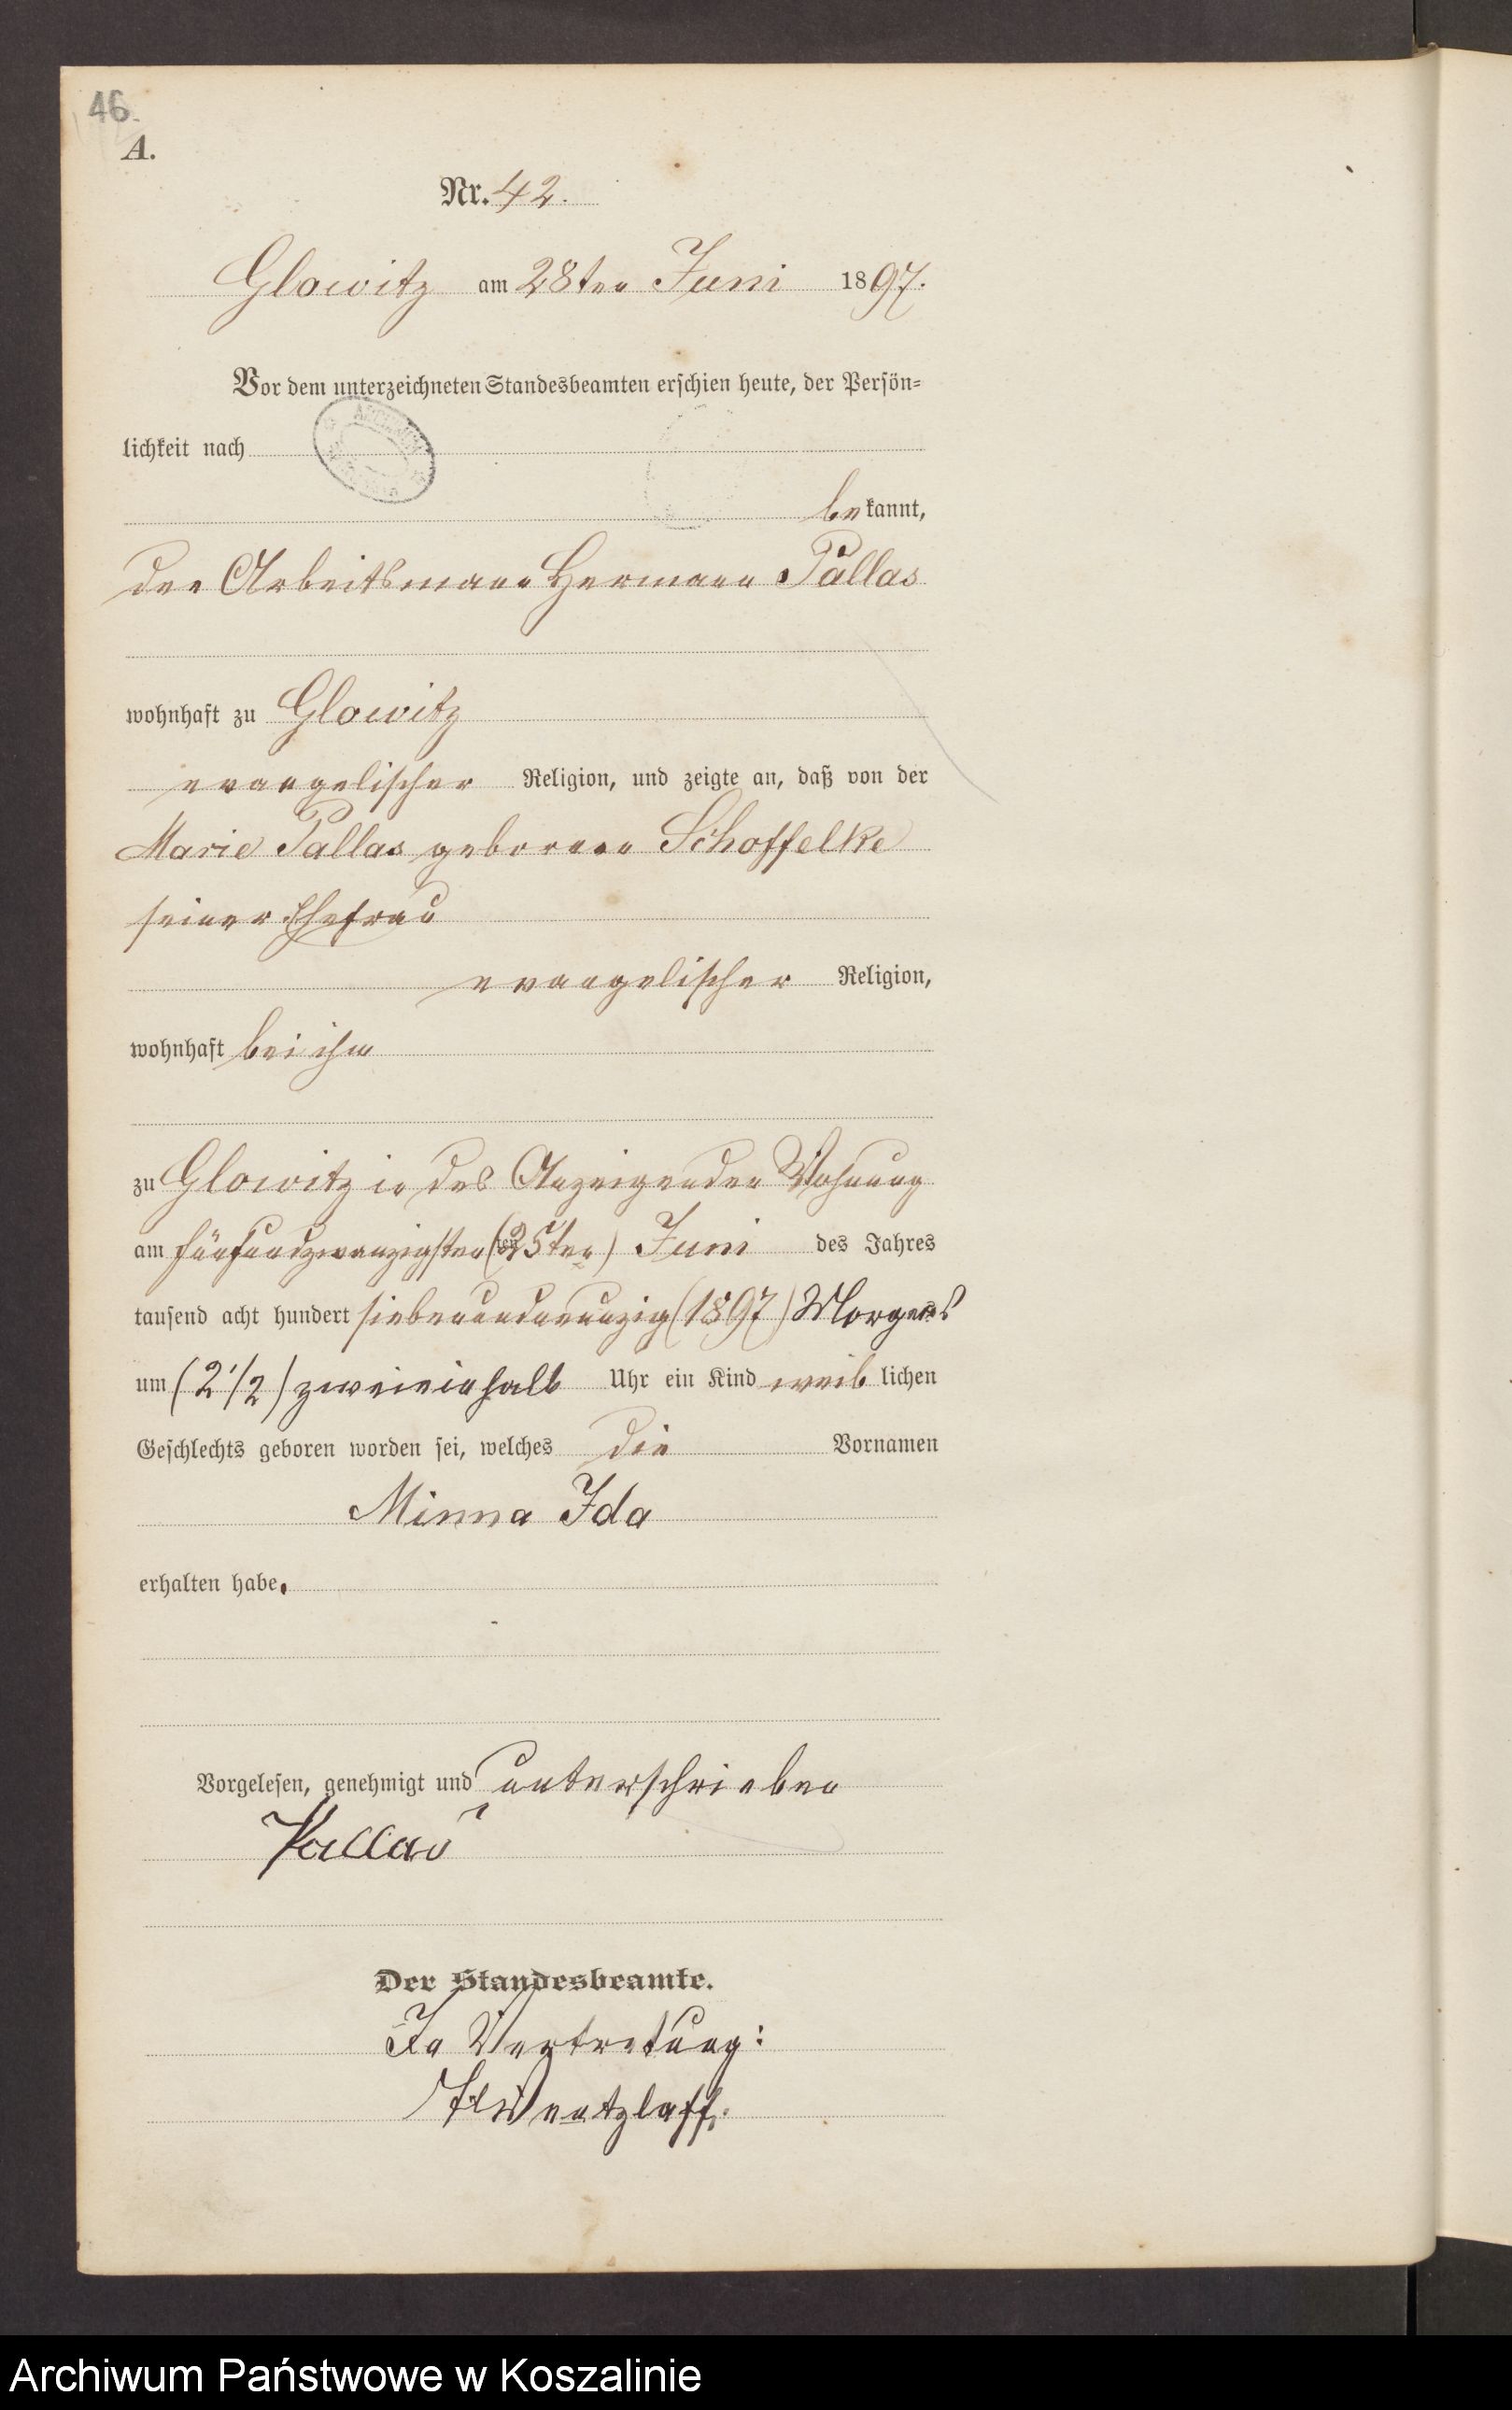 46.
A.
Nr. 42.
Glowitz am 28ten Juni 1897.
Vor dem unterzeichneten Standesbeamten erschien heute, der Persön-
lichkeit nach
bekannt,
der Arbeitsmann Hermann Pallas
wohnhaft zu Glowitz
evangelischer Religion, und zeigte an, daß von der
Marie Pallas geborenen Schoffelke
seiner Ehefrau
evangelischer Religion,
wohnhaft bei ihm
zu Glowitz in des Anzeigenden Wohnung
am fünfundzwanzigsten (25ten) Juni des Jahres
tausend acht hundert siebenundneunzig (1897) Morgens
um (2 1/2) zweieinhalb Uhr ein Kind weiblichen
Geschlechts geboren worden sei, welches die Vornamen
Minna Ida
erhalten habe.
Vorgelesen, genehmigt und unterschrieben
Pallas
Der Standesbeamte.
In Vertretung:
Wentzlaff.
Archiwum Państwowe w Koszalinie